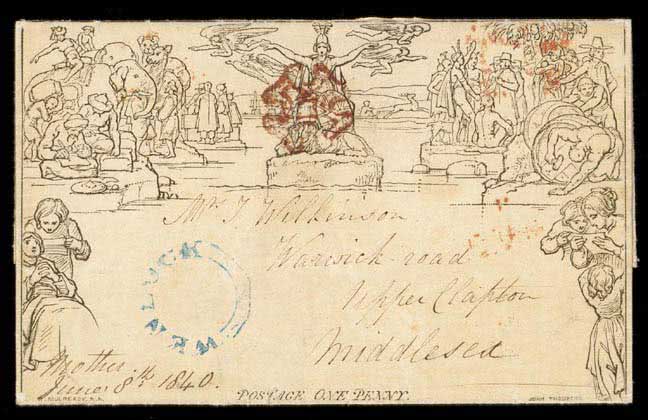 Mr. T. Wilkinson
Warwick road
Upper Clapton
Middlesex
WENLOCK
Mother
June 8th 1840.
POSTAGE ONE PENNY.
W. MULREADY, R.A.
JOHN THOMPSON